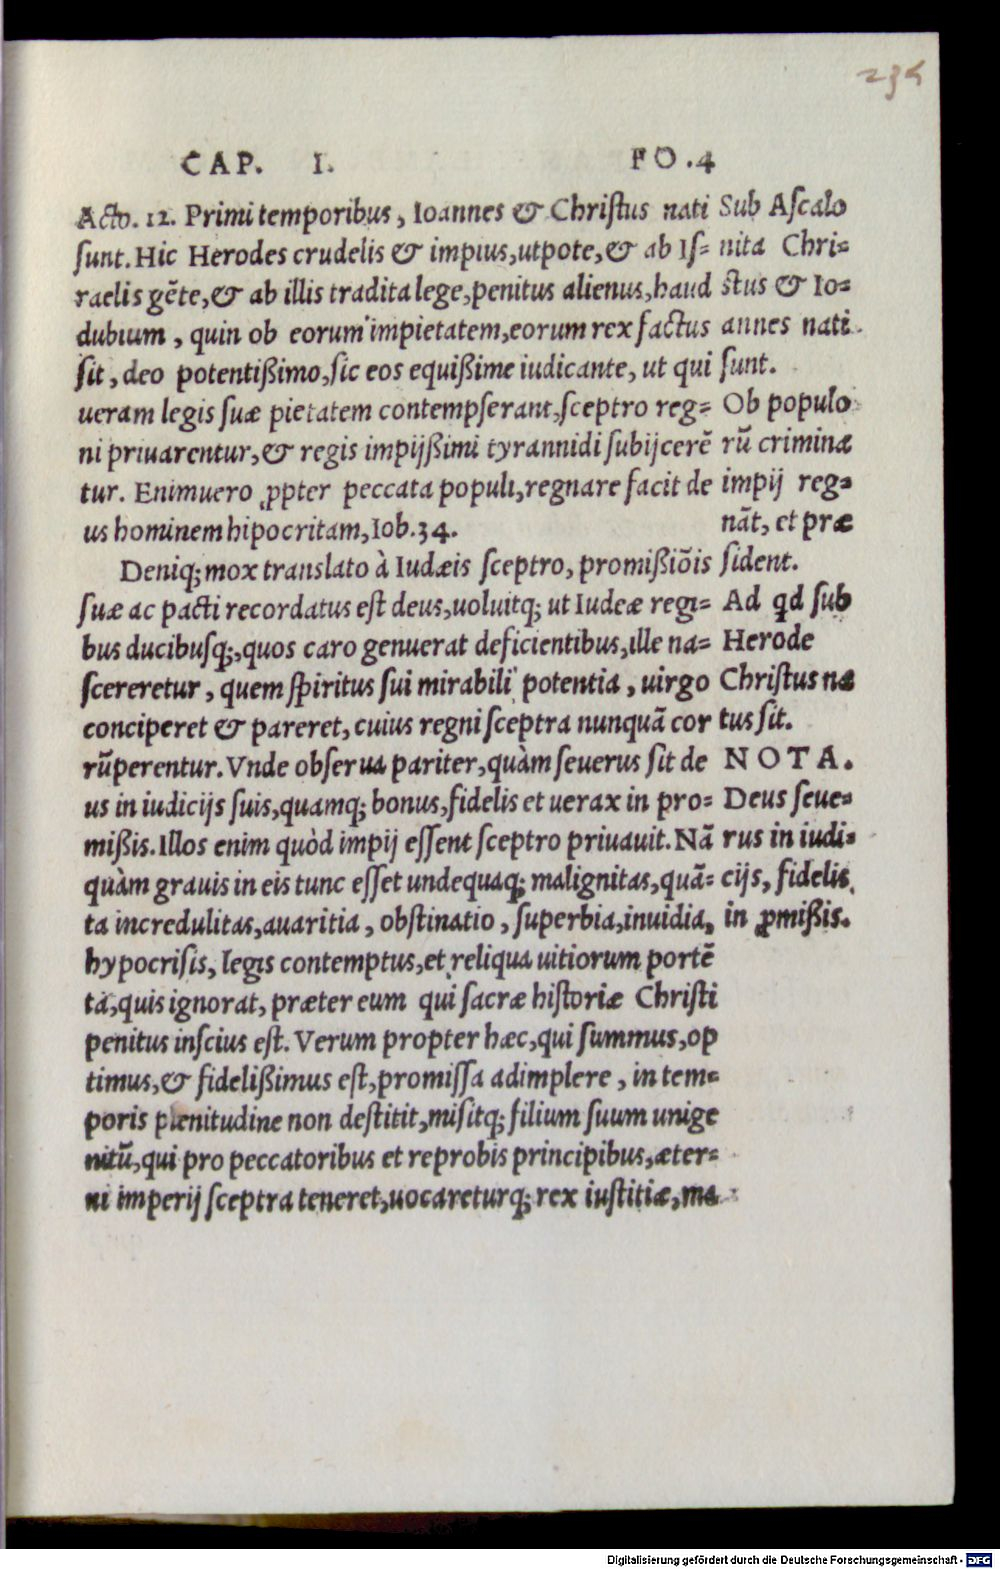 CAP. I. FO.4
Acto. 12. Primi temporibus, Ioannes & Christus nati
sunt. Hic Herodes crudelis & impius, utpote, & ab Is-
raelis gẽte, & ab illis tradita lege, penitus alienus, haud
dubium, quin ob eorum impietatem, eorum rex factus
sit, deo potentißimo, sic eos equißime iudicante, ut qui
ueram legis suæ pietatem contempserant, sceptro reg-
ni priuarentur, & regis impijßimi tyrannidi subijcerẽ
tur. Enimuero ꝓpter peccata populi, regnare facit de
us hominem hipocritam, Iob. 34.
Deniq; mox translato à Iudæis sceptro, promißiõis
suæ ac pacti recordatus est deus, uoluitq; ut Iudeæ regi-
bus ducibusq;, quos caro genuerat deficientibus, ille na-
scereretur, quem spiritus sui mirabili potentia, uirgo
conciperet & pareret, cuius regni sceptra nunquã cor
rũperentur. Vnde obserua pariter, quàm seuerus sit de
us in iudicijs suis, quamq; bonus, fidelis et uerax in pro-
mißis. Illos enim quòd impij essent sceptro priuauit. Nã
quàm grauis in eis tunc esset undequaq; malignitas, quã-
ta incredulitas, auaritia, obstinatio, superbia, inuidia,
hypocrisis, legis contemptus, et reliqua uitiorum portẽ
ta, quis ignorat, præter eum qui sacræ historiæ Christi
penitus inscius est. Verum propter hæc, qui summus, op
timus, & fidelißimus est, promissa adimplere, in tem-
poris plenitudine non destitit, misitq; filium suum unige
nitũ, qui pro peccatoribus et reprobis principibus, æter-
ni imperij sceptra teneret, uocareturq; rex iustitiæ, ma
Sub Ascalo
nita Chri-
stus & Io-
annes nati
sunt.
Ob populo
rũ criminæ
impij reg-
nãt, et præ
sident.
Ad qd sub
Herode
Christus na
tus sit.
NOTA.
Deus seue-
rus in iudi-
cijs, fidelis
in ꝓmißis.
Digitalisierung gefördert durch die Deutsche Forschungsgemeinschaft - DFG